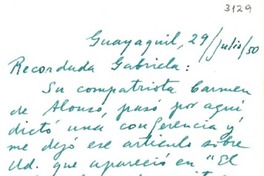 3129
Guayaquil, 29/Julio/50
Recordada Gabriela:
Su compatriota Carmen
de Alonso, pasó por aquí
dictó una conferencia y
me dejó ese artículo sobre
Ud. que apareció en "El